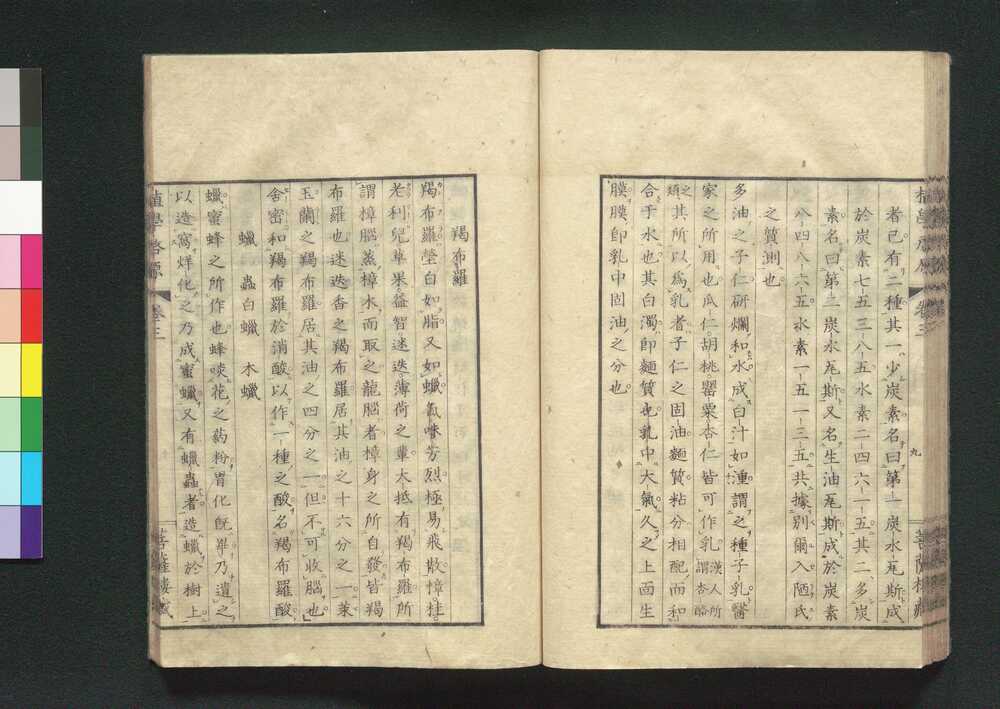 者已有二種其一少炭素名曰第一炭水瓦斯成
於炭素七五三八五水素二四六一五其二多炭
素名曰第二炭水瓦斯又名生油瓦斯成於炭素
八四八六五水素一五一三五共據別爾入陋氏
之質測也
多油之子仁研爛和水成白汁如湩謂之種子乳醫
家之所用也瓜仁胡桃罌粟杏仁皆可作乳漢人所謂杏酪
之類其所以為乳者子仁之固油麵質粘分相配而和
合于水也其白濁即麵質也乳中大氣久之上面生
膜膜即乳中固油之分也
植學啓原
卷三
九
菩薩樓藏
羯布羅
羯布羅瑩白如脂又如蠟氣味芳烈極易飛散樟桂
老利兒華果益智迷迭薄荷之輩大抵有羯布羅所
謂樟腦蒸樟木而取之龍腦者樟身之所自發皆羯
布羅也迷迭香之羯布羅居其油之十六分之一萊
玉蘭之羯布羅居其油之四分之一但不可收腦也
舍密和羯布羅於消酸以作一種之酸名羯布羅酸
蠟 蟲白蠟 木蠟
蠟蜜蜂之所作也蜂啖花之葯粉胃化既畢乃遺之
以造窩烊化之乃成蜜蠟又有蠟蟲者造蠟於樹上
植學啓原
卷三
菩薩樓藏